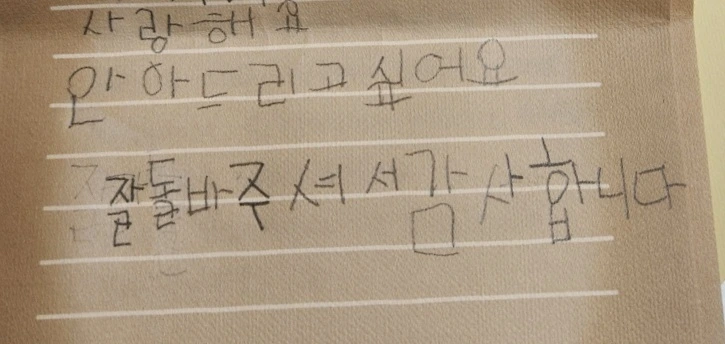 사랑해요
안아드리고싶어요
잘돌바주셔서감사합니다